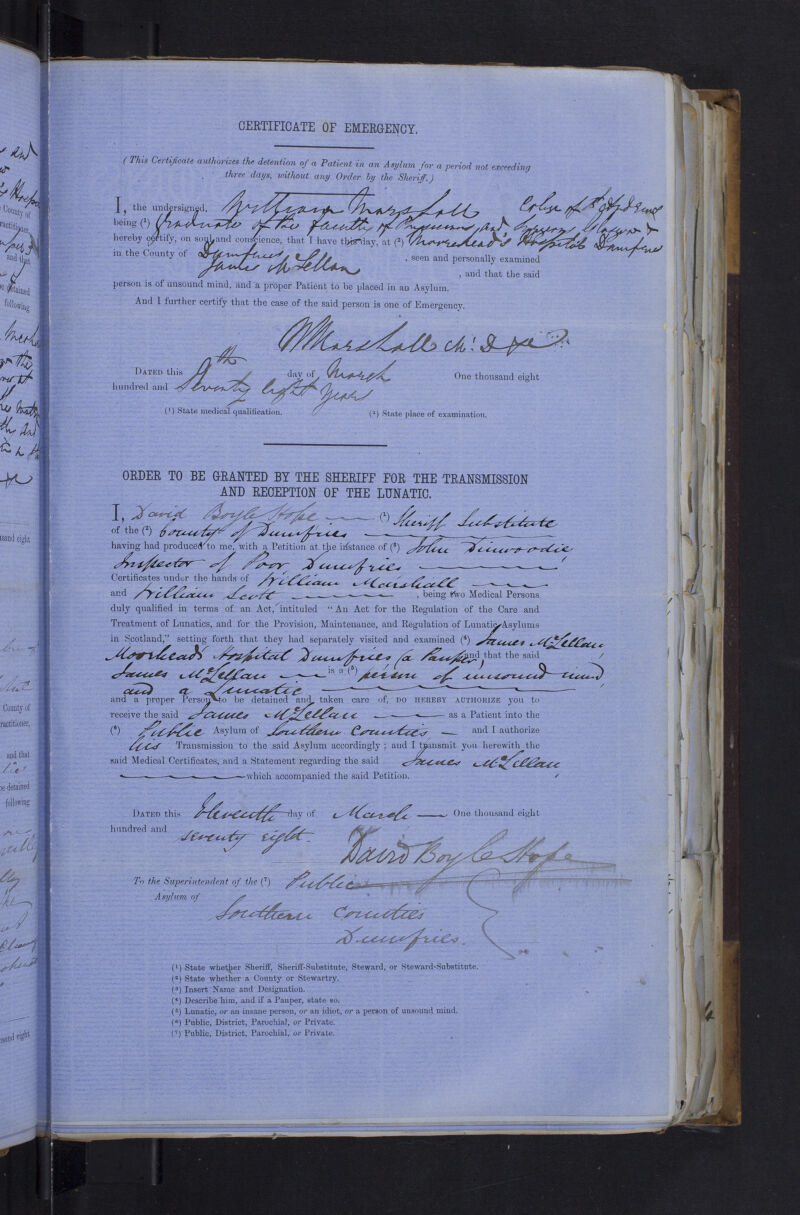 CERTIFICATE OF EMERGENCY.
(This Certificate authorizes the detention of a Patient in an Asylum for a period not exceeding
three days, without any Order by the Sheriff.)
I, the undersigned, William Marshall
being (1) Graduate of the Faculty of Physicians and
hereby certify, on soul and conscience, that I have this day, at (2) Moorehead's Hospital Dumfries
in the County of Dumfries, seen and personally examined
James McLellan, and that the said
person is of unsound mind, and a proper Patient to be placed in an Asylum.
And I further certify that the case of the said person is one of Emergency.
WMarshall M.D &c
DATED this day of March One thousand eight
hundred and Seventy Eight Years
(1) State medical qualification. (2) State place of examination.
ORDER TO BE GRANTED BY THE SHERIFF FOR THE TRANSMISSION
AND RECEPTION OF THE LUNATIC.
I, David Boyle Hope (1) Sheriff Substitute
of the (2) County of Dumfries
having had produced to me, with a Petition at the instance of (3) John Dinwoodie,
Inspector of Poor Dumfries
Certificates under the hands of William Marshall
and William Scott, being two Medical Persons
duly qualified in terms of an Act, intituled "An Act for the Regulation of the Care and
Treatment of Lunatics, and for the Provision, Maintenance, and Regulation of Lunatic Asylums
in Scotland," setting forth that they had separately visited and examined (4) James McLellan,
Moorheads Hospital Dumfries (a Pauper) and that the said
James McLellan is a (5) person of unsound mind
and a Lunatic
and a proper Person to be detained and taken care of, DO HEREBY AUTHORIZE you to
receive the said James McLellan as a Patient into the
(6) Public Asylum of Southern Counties and I authorize
his Transmission to the said Asylum accordingly; and I transmit you herewith the
said Medical Certificates, and a Statement regarding the said James McLellan,
which accompanied the said Petition.
DATED this Eleventh day of March One thousand eight
hundred and seventy eight.
David Boyle Hope
To the Superintendent of the (7) Public
Asylum of
Southern Counties
Dumfries.
(1) State whether Sheriff, Sheriff-Substitute, Steward, or Steward-Substitute.
(2) State whether a County or Stewartry.
(3) Insert Name and Designation.
(4) Describe him, and if a Pauper, state so.
(5) Lunatic, or an insane person, or an idiot, or a person of unsound mind.
(6) Public, District, Parochial, or Private.
(7) Public, District, Parochial, or Private.